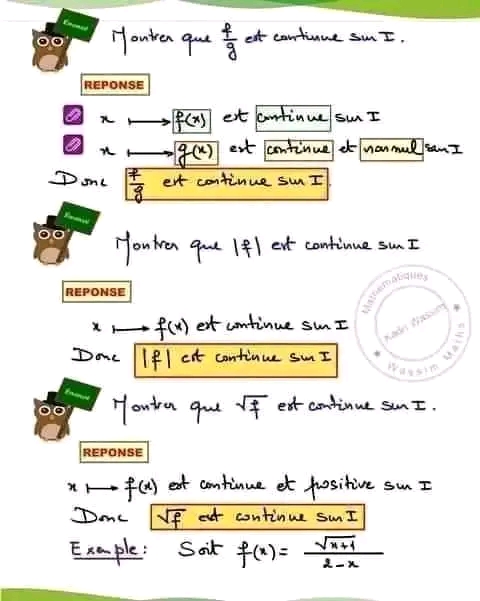 Enoncé
Montrer que f/g est continue sur I.
REPONSE
x ⟼ f(x) est continue sur I
x ⟼ g(x) est continue et non nul sur I
Donc f/g est continue sur I.
Enoncé
Montrer que |f| est continue sur I
REPONSE
x ⟼ f(x) est continue sur I
Donc |f| est continue sur I
Mathématiques
Kadri Wassim
Wassim Maths
Enoncé
Montrer que √f est continue sur I.
REPONSE
x ⟼ f(x) est continue et positive sur I
Donc √f est continue sur I
Exemple: Soit f(x) = √(x+1) / (2-x)